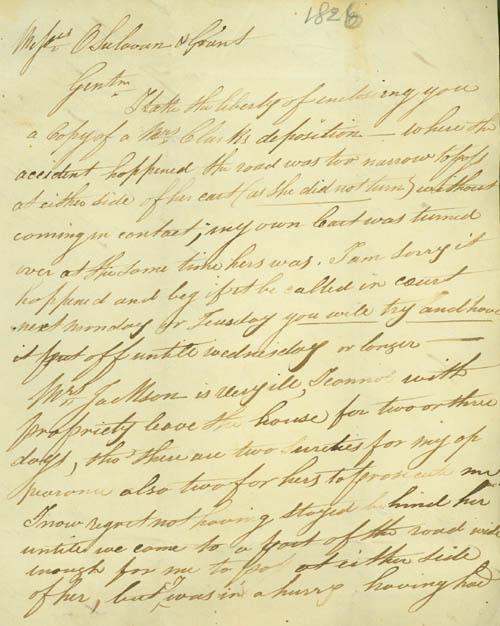 1826
Messrs O Sulovan & Grant
Gentn
I take the liberty of enclosing you
a Copy of a Mrs Clarks deposition — where the
accident happened the road was too narrow to pass
at either side of her cart (as she did not turn) without
coming in contact; my own Cart was turned
over at the same time hers was. I am sorry it
happened and beg if it be called in court
next monday or Tuesday you will try and have
it put off until wednesday or longer —
Mrs Jackson is very ill, I cannot with
propriety leave the house for two or three
days, tho' there are two sureties for my ap
pearance also two for hers to prosecute me
I now regret not having stayed behind her
until we came to a part of the road wide
enough for me to pass at either side
of her, but I was in a hurry having had